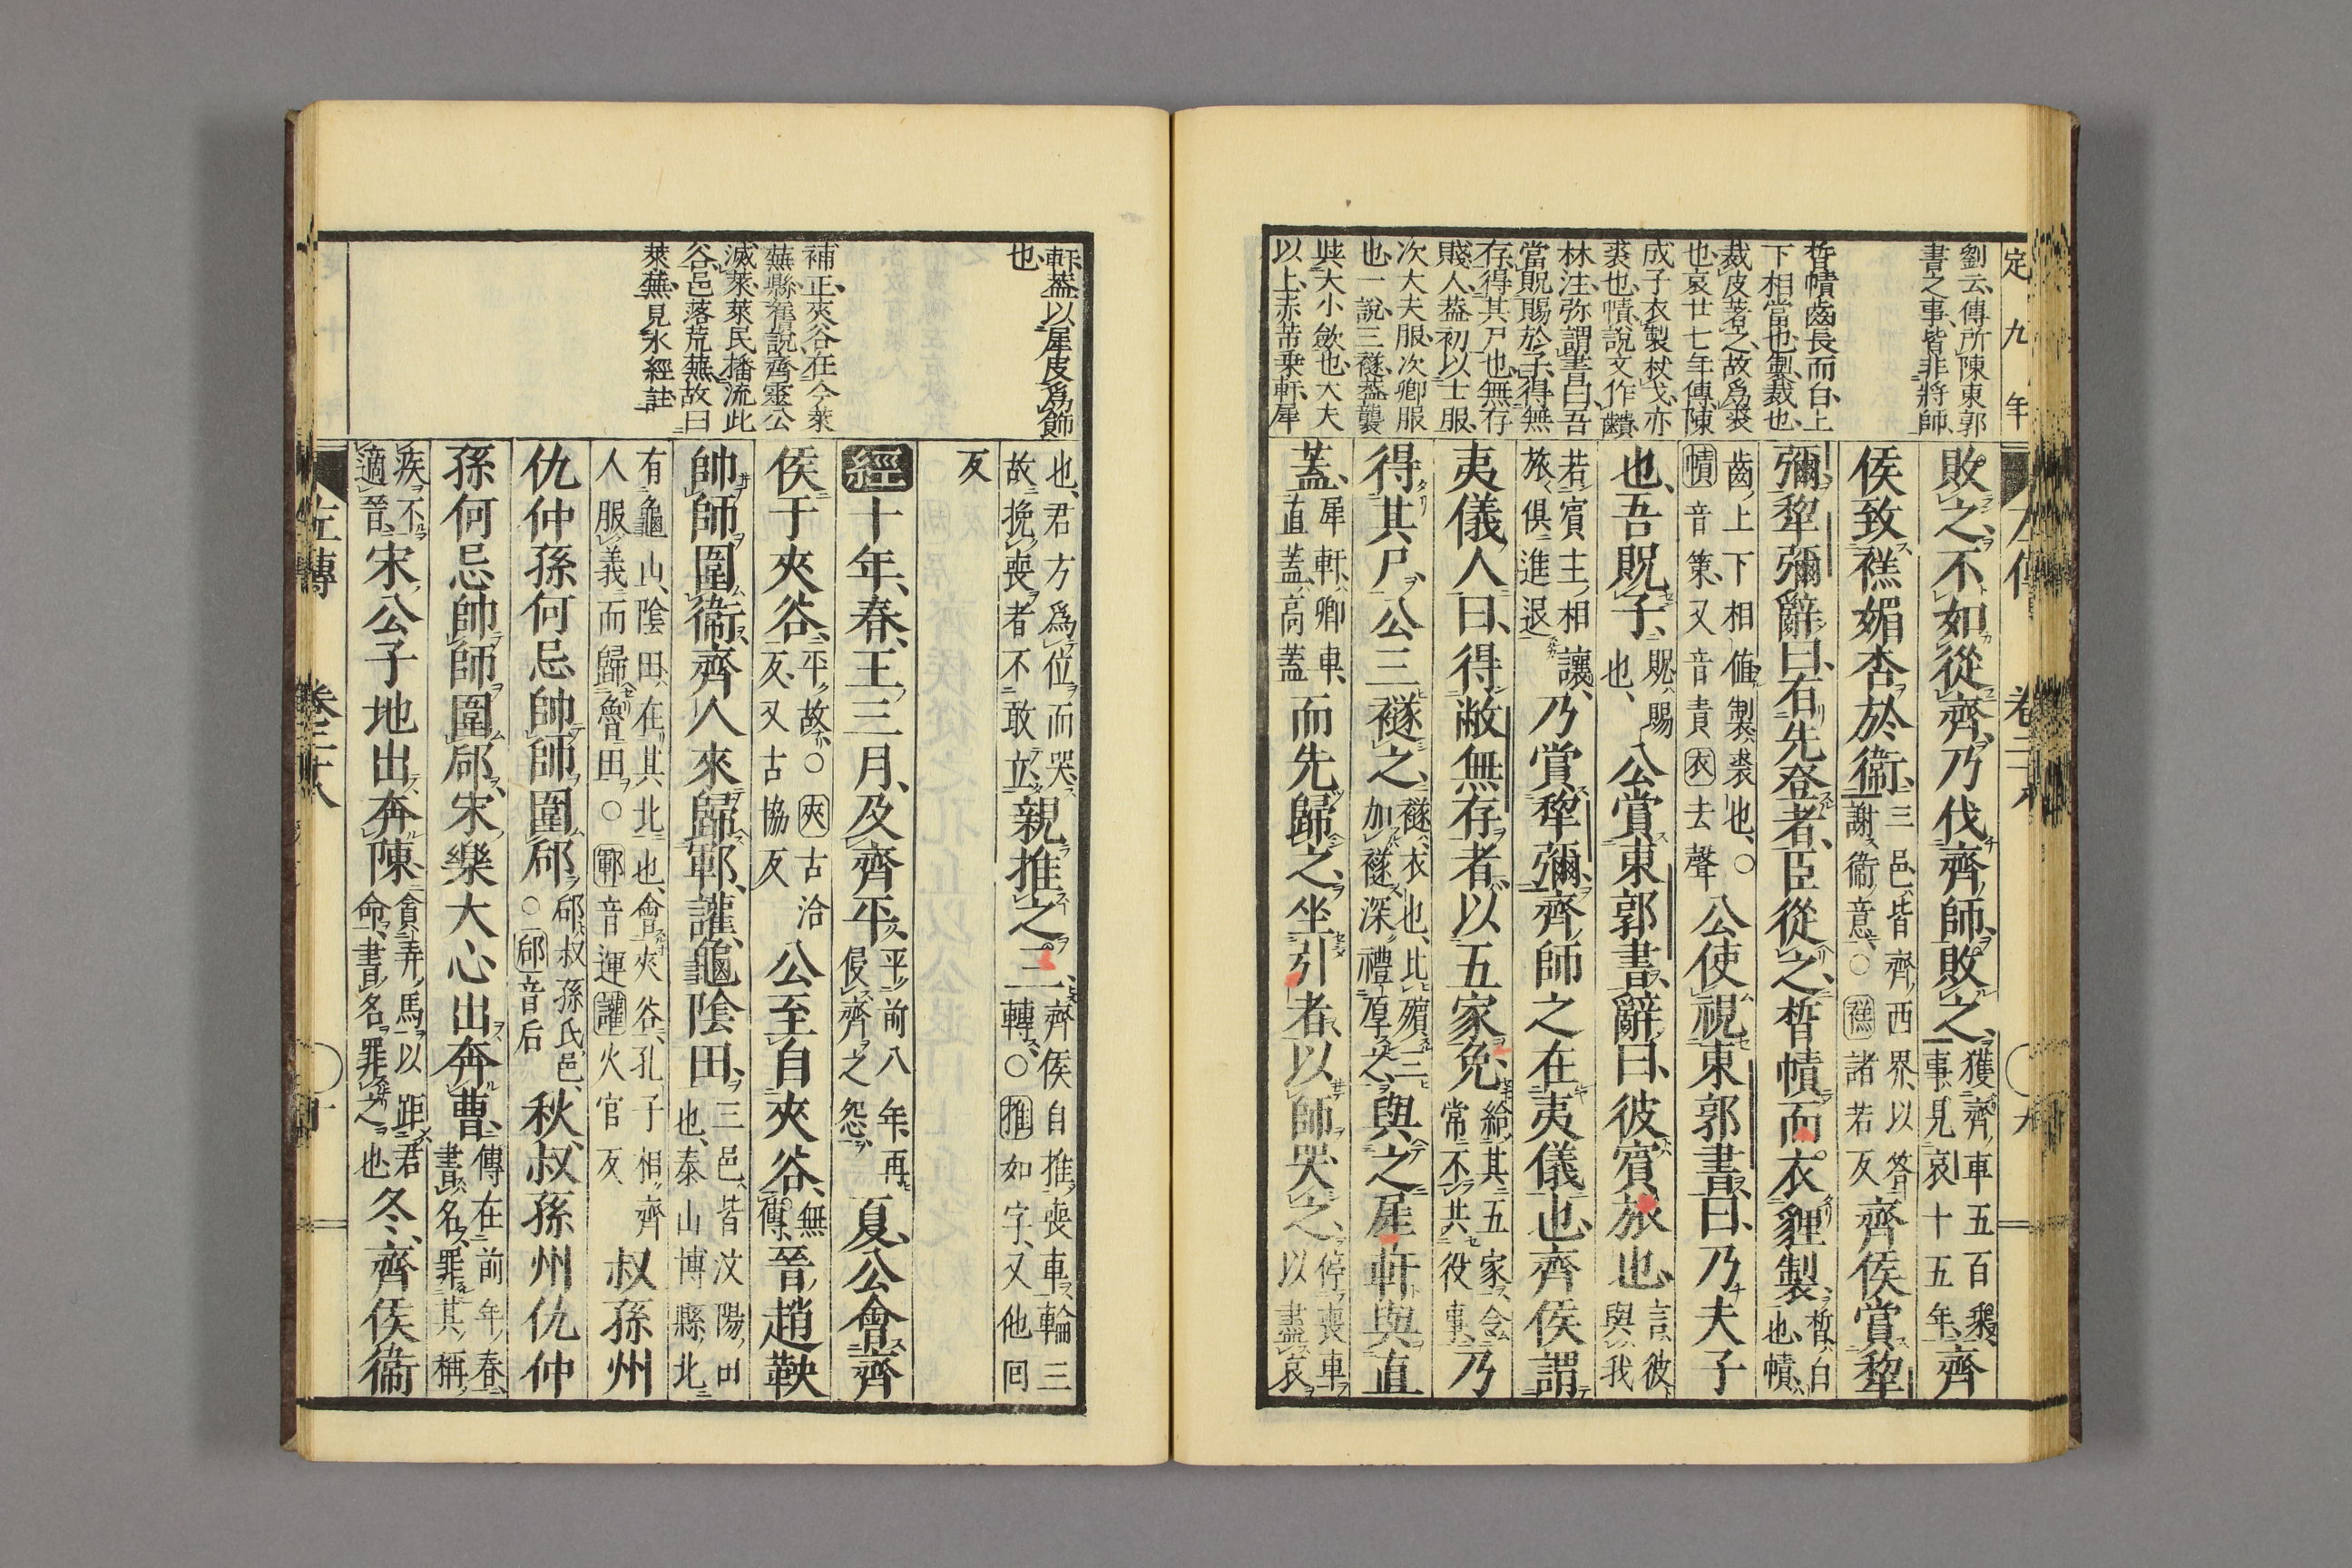 定九年
劉云、傳所陳東郭
書之事、皆非將師、
晳幘齒長而白、上
下相當也、製裁也、
裁皮著之、故爲裘
也、哀廿七年傳、陳
成子衣製杖戈、亦
裘也、幘說文作䶦
林注、弥謂書曰、吾
當貺賜於子、得無
存、得其尸也、無存
賤人、葢初以士服、
次大夫服、次卿服
也、一說、三襚葢襲
與大小斂也、大夫
以上、赤芾乗軒、犀
敗之、不如從齊、乃伐齊師、敗之、獲齊車五百乘、事見哀十五年、齊
侯致禚媚杏於衞、三邑、皆齊西界、以答謝衞意、○禚諸若反齊侯賞犂
彌、犂彌辭曰、有先登者、臣從之、晳幘而衣貍製、晳、白也、幘、
齒上下相値、製、裘也、○幘音策、又音責衣去聲公使視東郭書、曰、乃夫子
也、吾貺子、貺、賜也、公賞東郭書、辭曰、彼賓旅也、言彼與我
若賓主相讓、旅俱進退乃賞犂彌、齊師之在夷儀也、齊侯謂
夷儀人曰、得敝無存者、以五家免、給其五家、令常不共役事、乃
得其尸、公三襚之、襚、衣也、比殯三加襚、深禮厚之、與之犀軒與直
蓋、犀軒、卿車、直蓋、高蓋而先歸之、坐引者、以師哭之、停喪車以盡哀
軒蓋以犀皮爲飾
也、
補正、夾谷、在今萊
蕪縣、舊說、齊靈公
滅萊、萊民播流此
谷、邑落荒蕪、故曰
萊蕪、見水經註、
也、君方爲位而哭、故挽喪者不敢立、親推之三、齊侯自推喪車輪三轉、○推如字、又他回
反
經十年、春、王三月、及齊平、平前八年再侵齊之怨、夏、公會齊
侯于夾谷、平故、○夾古洽反、又古協反公至自夾谷、無傳、晉趙鞅
帥師圍衞、齊人來歸鄆讙龜陰田、三邑、皆汶陽田也、泰山博縣北
有龜山、陰田、在其北也、會夾谷、孔子相、齊人服義而歸魯田、○鄆音運讙火官反叔孫州
仇仲孫何忌帥師圍郈、郈、叔孫氏邑、○郈音后秋、叔孫州仇仲
孫何忌帥師圍郈、宋樂大心出奔曹、傳在前年春、書名、罪其稱
疾不適晉、宋公子地出奔陳、貪弄馬以距君命、書名罪之也冬、齊侯衞
左傳 卷二十八 十